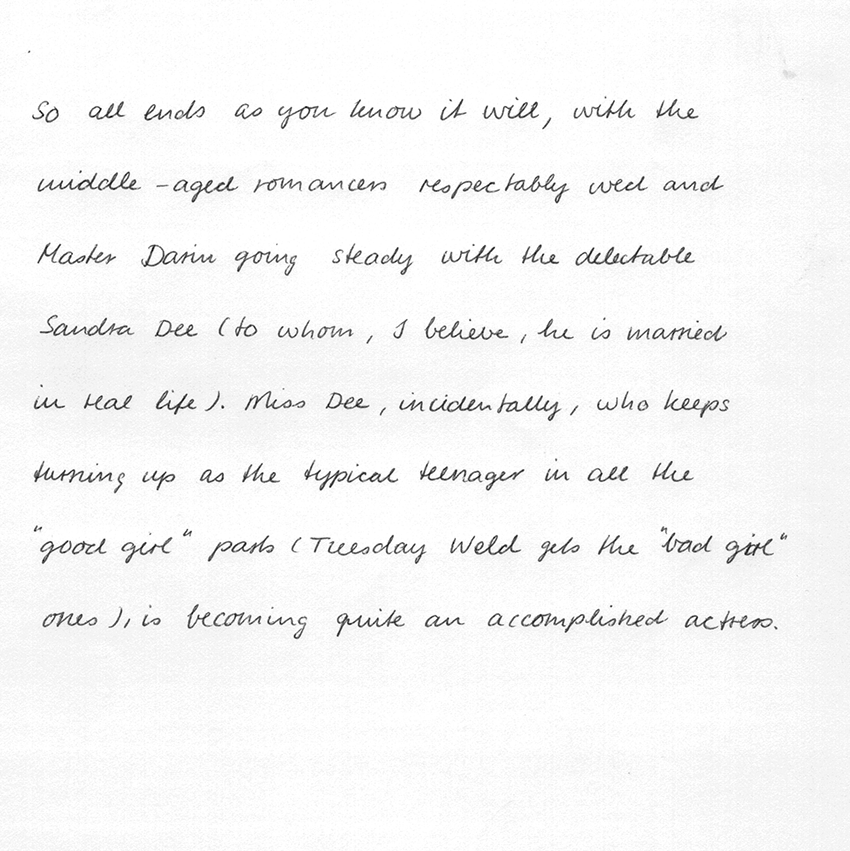 So all ends as you know it will, with the
middle-aged romancers respectably wed and
Master Darin going steady with the delectable
Sandra Dee (to whom, I believe, he is married
in real life). Miss Dee, incidentally, who keeps
turning up as the typical teenager in all the
"good girl" parts (Tuesday Weld gets the "bad girl"
ones), is becoming quite an accomplished actress.